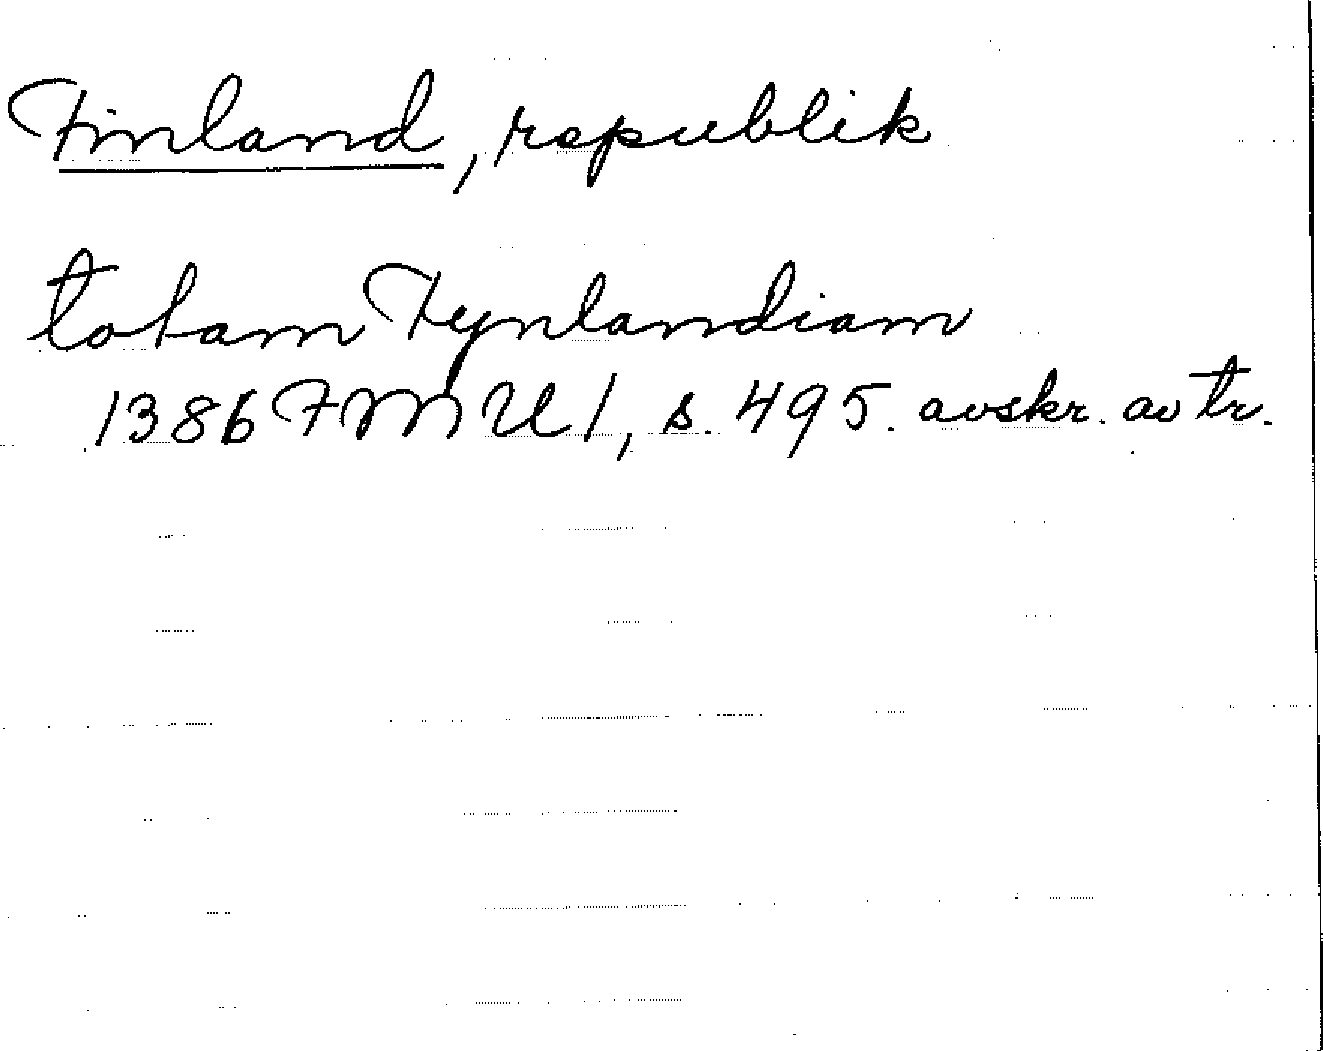 Finland, republik
totam Fynlandiam
1386 FMU 1, s. 495. avskr. av tr.